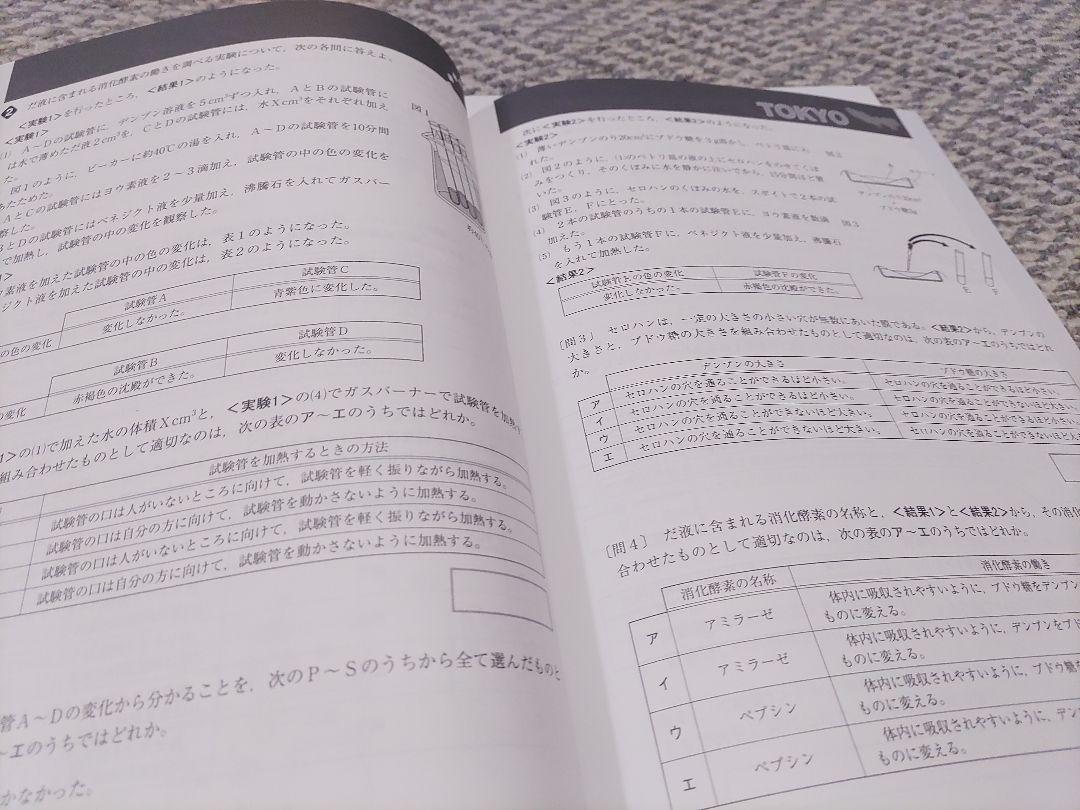 2 だ液に含まれる消化酵素の働きを調べる実験について,次の各問に答えよ。
<実験1>を行ったところ,<結果1>のようになった。
<実験1>
(1) A~Dの試験管に,デンプン溶液を5cm³ずつ入れ,AとBの試験管に
は水で薄めただ液2cm³を,CとDの試験管には,水Xcm³をそれぞれ加え
た。
図1のように,ビーカーに約40℃の湯を入れ,A~Dの試験管を10分間
あたためた。
AとCの試験管にはヨウ素液を2~3滴加え,試験管の中の色の変化を
察した。
BとDの試験管にはベネジクト液を少量加え,沸騰石を入れてガスバー
で加熱し,試験管の中の変化を観察した。
1>
ウ素液を加えた試験管の中の色の変化は,表1のようになった。
ジクト液を加えた試験管の中の変化は,表2のようになった。
図1
試験管A 試験管C
の色の変化 変化しなかった。 青紫色に変化した。
試験管B 試験管D
の変化 赤褐色の沈殿ができた。 変化しなかった。
1>の(1)で加えた水の体積Xcm³と,<実験1>の(4)でガスバーナーで試験管を加熱す
組み合わせたものとして適切なのは,次の表のア~エのうちではどれか。
試験管を加熱するときの方法
試験管の口は人がいないところに向けて,試験管を軽く振りながら加熱する。
試験管の口は自分の方に向けて,試験管を動かさないように加熱する。
試験管の口は人がいないところに向けて,試験管を軽く振りながら加熱する。
試験管の口は自分の方に向けて,試験管を動かさないように加熱する。
管A~Dの変化から分かることを,次のP~Sのうちから全て選んだものと
~エのうちではどれか。
かなかった。
TOKYO
次に<実験2>を行ったところ,<結果2>のようになった。
<実験2>
(1) 薄いデンプンのり20cm³にブドウ糖を3g溶かし,ペトリ皿に入
れた。
(2) 図2のように,(1)のペトリ皿の液の上にセロハンをのせてくぼ
みをつくり,そのくぼみに水を静かに注いでから,15分間ほど置
いた。
(3) 図3のように,セロハンのくぼみの水を,スポイトで2本の試
験管E,Fにとった。
(4) 2本の試験管のうちの1本の試験管Eに,ヨウ素液を数滴
加えた。
(5) もう1本の試験管Fに,ベネジクト液を少量加え,沸騰石
を入れて加熱した。
図2
図3
E F
<結果2>
試験管Eの色の変化 試験管Fの変化
変化しなかった。 赤褐色の沈殿ができた。
〔問3〕 セロハンは,一定の大きさの小さい穴が無数にあいた膜である。<結果2>から,デンプンの
大きさと,ブドウ糖の大きさを組み合わせたものとして適切なのは,次の表のア~エのうちではどれ
か。
デンプンの大きさ ブドウ糖の大きさ
ア セロハンの穴を通ることができるほど小さい。 セロハンの穴を通ることができるほど小さい。
イ セロハンの穴を通ることができるほど小さい。 セロハンの穴を通ることができないほど大きい。
ウ セロハンの穴を通ることができないほど大きい。 セロハンの穴を通ることができるほど小さい。
エ セロハンの穴を通ることができないほど大きい。 セロハンの穴を通ることができないほど大
〔問4〕 だ液に含まれる消化酵素の名称と,<結果1>と<結果2>から,その消化
合わせたものとして適切なのは,次の表のア~エのうちではどれか。
消化酵素の名称 消化酵素の働き
ア アミラーゼ 体内に吸収されやすいように,ブドウ糖をデンプン
ものに変える。
イ アミラーゼ 体内に吸収されやすいように,デンプンをブド
ものに変える。
ウ ペプシン 体内に吸収されやすいように,ブドウ糖を
ものに変える。
エ ペプシン 体内に吸収されやすいように,デン
ものに変える。